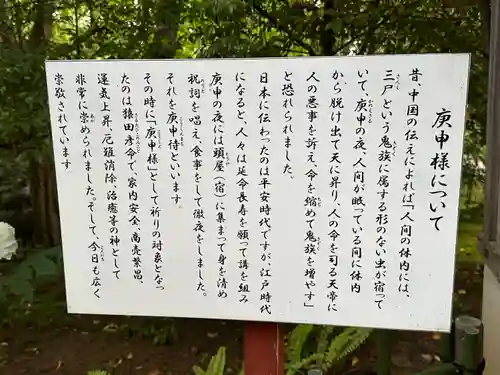 庚申様について
昔、中国の伝えによれば「人間の体内には、
三尸という鬼族に属する形のない虫が宿って
いて、庚申の夜、人間が眠っている間に体内
から脱け出て天に昇り、人の命を司る天帝に
人の悪事を訴え、命を縮めて鬼族を増やす」
と恐れられました。
日本に伝わったのは平安時代ですが、江戸時代
になると、人々は延命長寿を願って講を組み
庚申の夜には頭屋(宿)に集まって身を清め
祝詞を唱え、食事をして徹夜をしました。
それを庚申待といいます。
その時に「庚申様」として祈りの対象となっ
たのは猿田彦命で、家内安全、商売繁昌、
運気上昇、厄難消除、治癒等の神として
非常に崇められました。そして、今日も広く
崇敬されています。